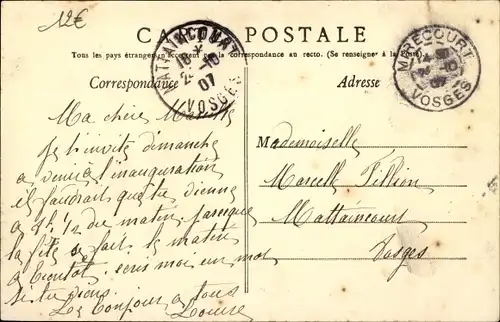 12€
CARTE POSTALE
Tous les pays étrangers n'acceptent pas la correspondance au recto. (Se renseigner à la Poste)
Correspondance
Adresse
MATTAINCOURT
07
VOSGES
MIRECOURT
07
VOSGES
Ma chère Marcelle
Je t'invite dimanche
a venir a l'inauguration
il faudrait que tu vienne
a 8h 1/2 du matin parceque
la fête se fait le matin
a bientot. ecris moi un mot
si tu viens.
Le Bonjour a tous
Louise
Mademoiselle
Marcelle Fillion
Mattaincourt
Vosges